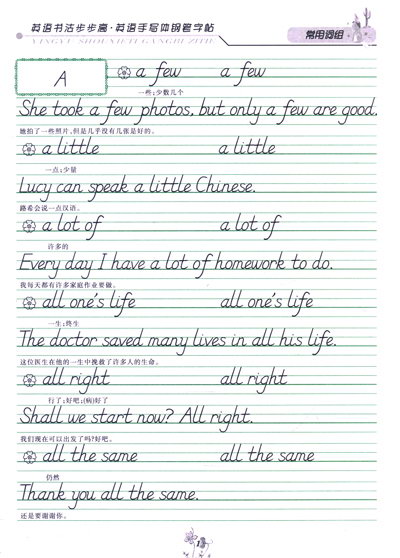 英语书法步步高·英语手写体钢笔字帖
YINGYU SHOUXIETI GANGBI ZITIE
常用词组
A
a few a few
一些;少数几个
She took a few photos, but only a few are good.
她拍了一些照片,但是几乎没有几张是好的。
a little a little
一点;少量
Lucy can speak a little Chinese.
路希会说一点汉语。
a lot of a lot of
许多的
Every day I have a lot of homework to do.
我每天都有许多家庭作业要做。
all one's life all one's life
一生;终生
The doctor saved many lives in all his life.
这位医生在他的一生中挽救了许多人的生命。
all right all right
行了;好吧;(病)好了
Shall we start now? All right.
我们现在可以出发了吗?好吧。
all the same all the same
仍然
Thank you all the same.
还是要谢谢你。
1